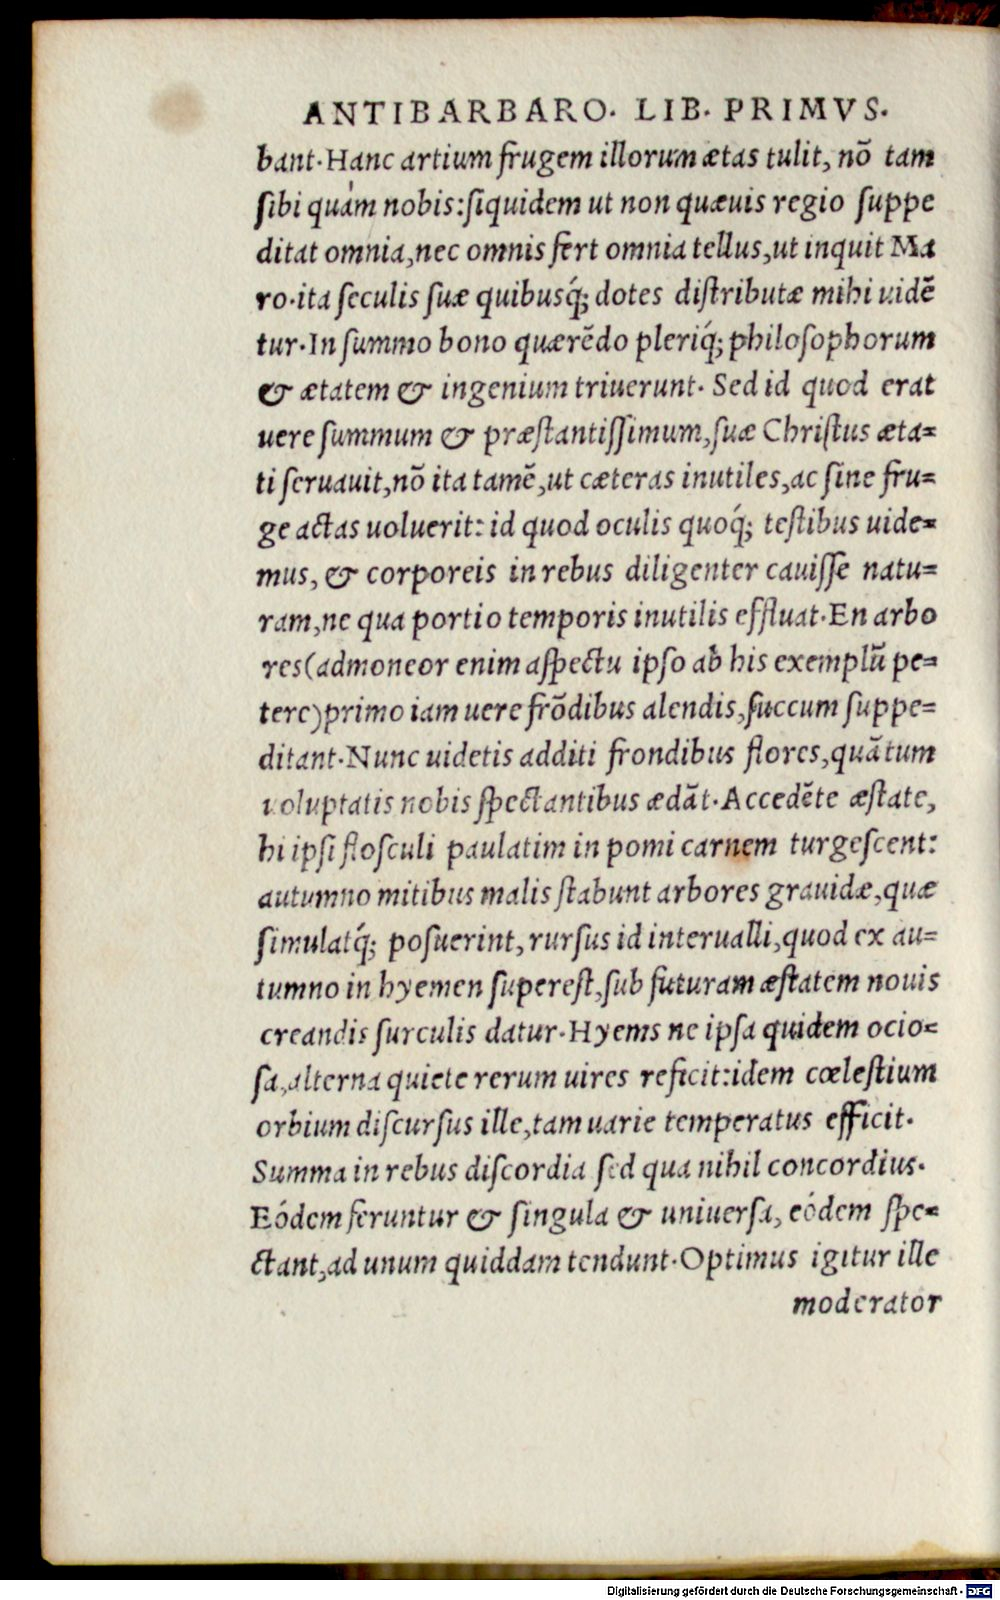 ANTIBARBARO. LIB. PRIMVS.
bant. Hanc artium frugem illorum ætas tulit, nō tam
ſibi quàm nobis: ſiquidem ut non quæuis regio ſuppe
ditat omnia, nec omnis fert omnia tellus, ut inquit Ma
ro. ita ſeculis ſuæ quibusq́; dotes diſtributæ mihi uidē
tur. In ſummo bono quærēdo pleriq́; philoſophorum
& ætatem & ingenium triuerunt. Sed id quod erat
uere ſummum & præſtantiſſimum, ſuæ Chriſtus æta=
ti ſeruauit, nō ita tamē, ut cæteras inutiles, ac ſine fru=
ge actas uoluerit: id quod oculis quoq́; teſtibus uide=
mus, & corporeis in rebus diligenter cauiſſe natu=
ram, ne qua portio temporis inutilis effluat. En arbo
res (admoneor enim aſpectu ipſo ab his exemplū pe=
tere) primo iam uere frōdibus alendis, ſuccum ſuppe=
ditant. Nunc uidetis additi frondibus flores, quātum
uoluptatis nobis ſpectantibus ædāt. Accedēte æſtate,
hi ipſi floſculi paulatim in pomi carnem turgeſcent:
autumno mitibus malis ſtabunt arbores grauidæ, quæ
ſimulatq́; poſuerint, rurſus id interualli, quod ex au=
tumno in hyemen ſupereſt, ſub futuram æſtatem nouis
creandis ſurculis datur. Hyems ne ipſa quidem ocio=
ſa, alterna quiete rerum uires reficit: idem cœleſtium
orbium diſcurſus ille, tam uarie temperatus efficit.
Summa in rebus diſcordia ſed qua nihil concordius.
Eódem feruntur & ſingula & uniuerſa, eódem ſpe=
ctant, ad unum quiddam tendunt. Optimus igitur ille
moderator
Digitalisierung gefördert durch die Deutsche Forschungsgemeinschaft - DFG